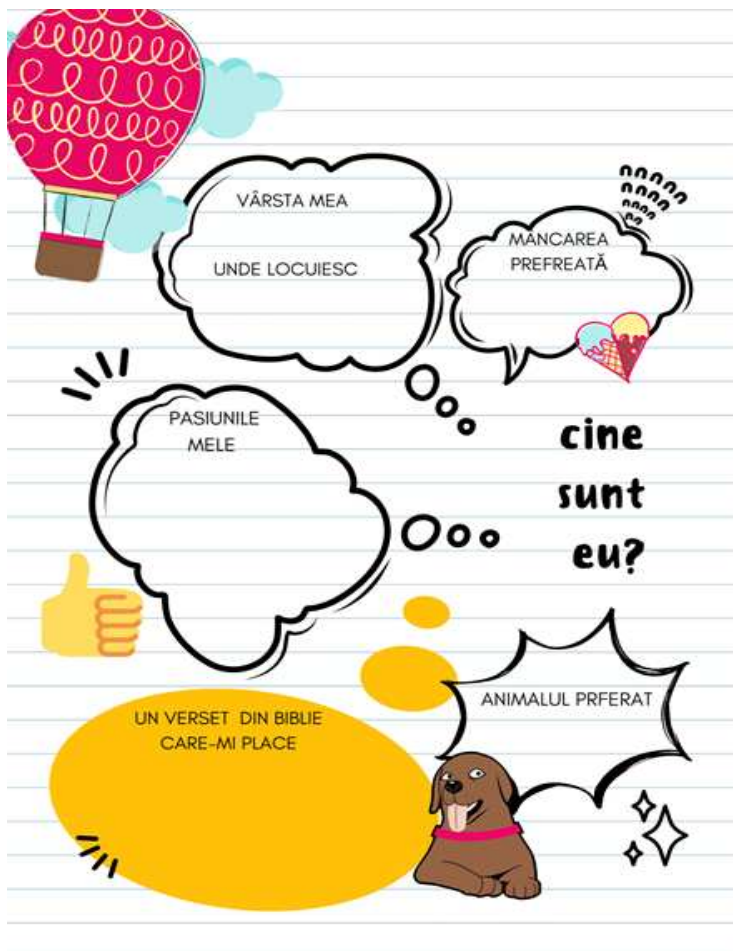 VÂRSTA MEA
UNDE LOCUIESC
MÂNCAREA
PREFREATĂ
PASIUNILE
MELE
cine
sunt
eu?
ANIMALUL PRFERAT
UN VERSET DIN BIBLIE
CARE-MI PLACE